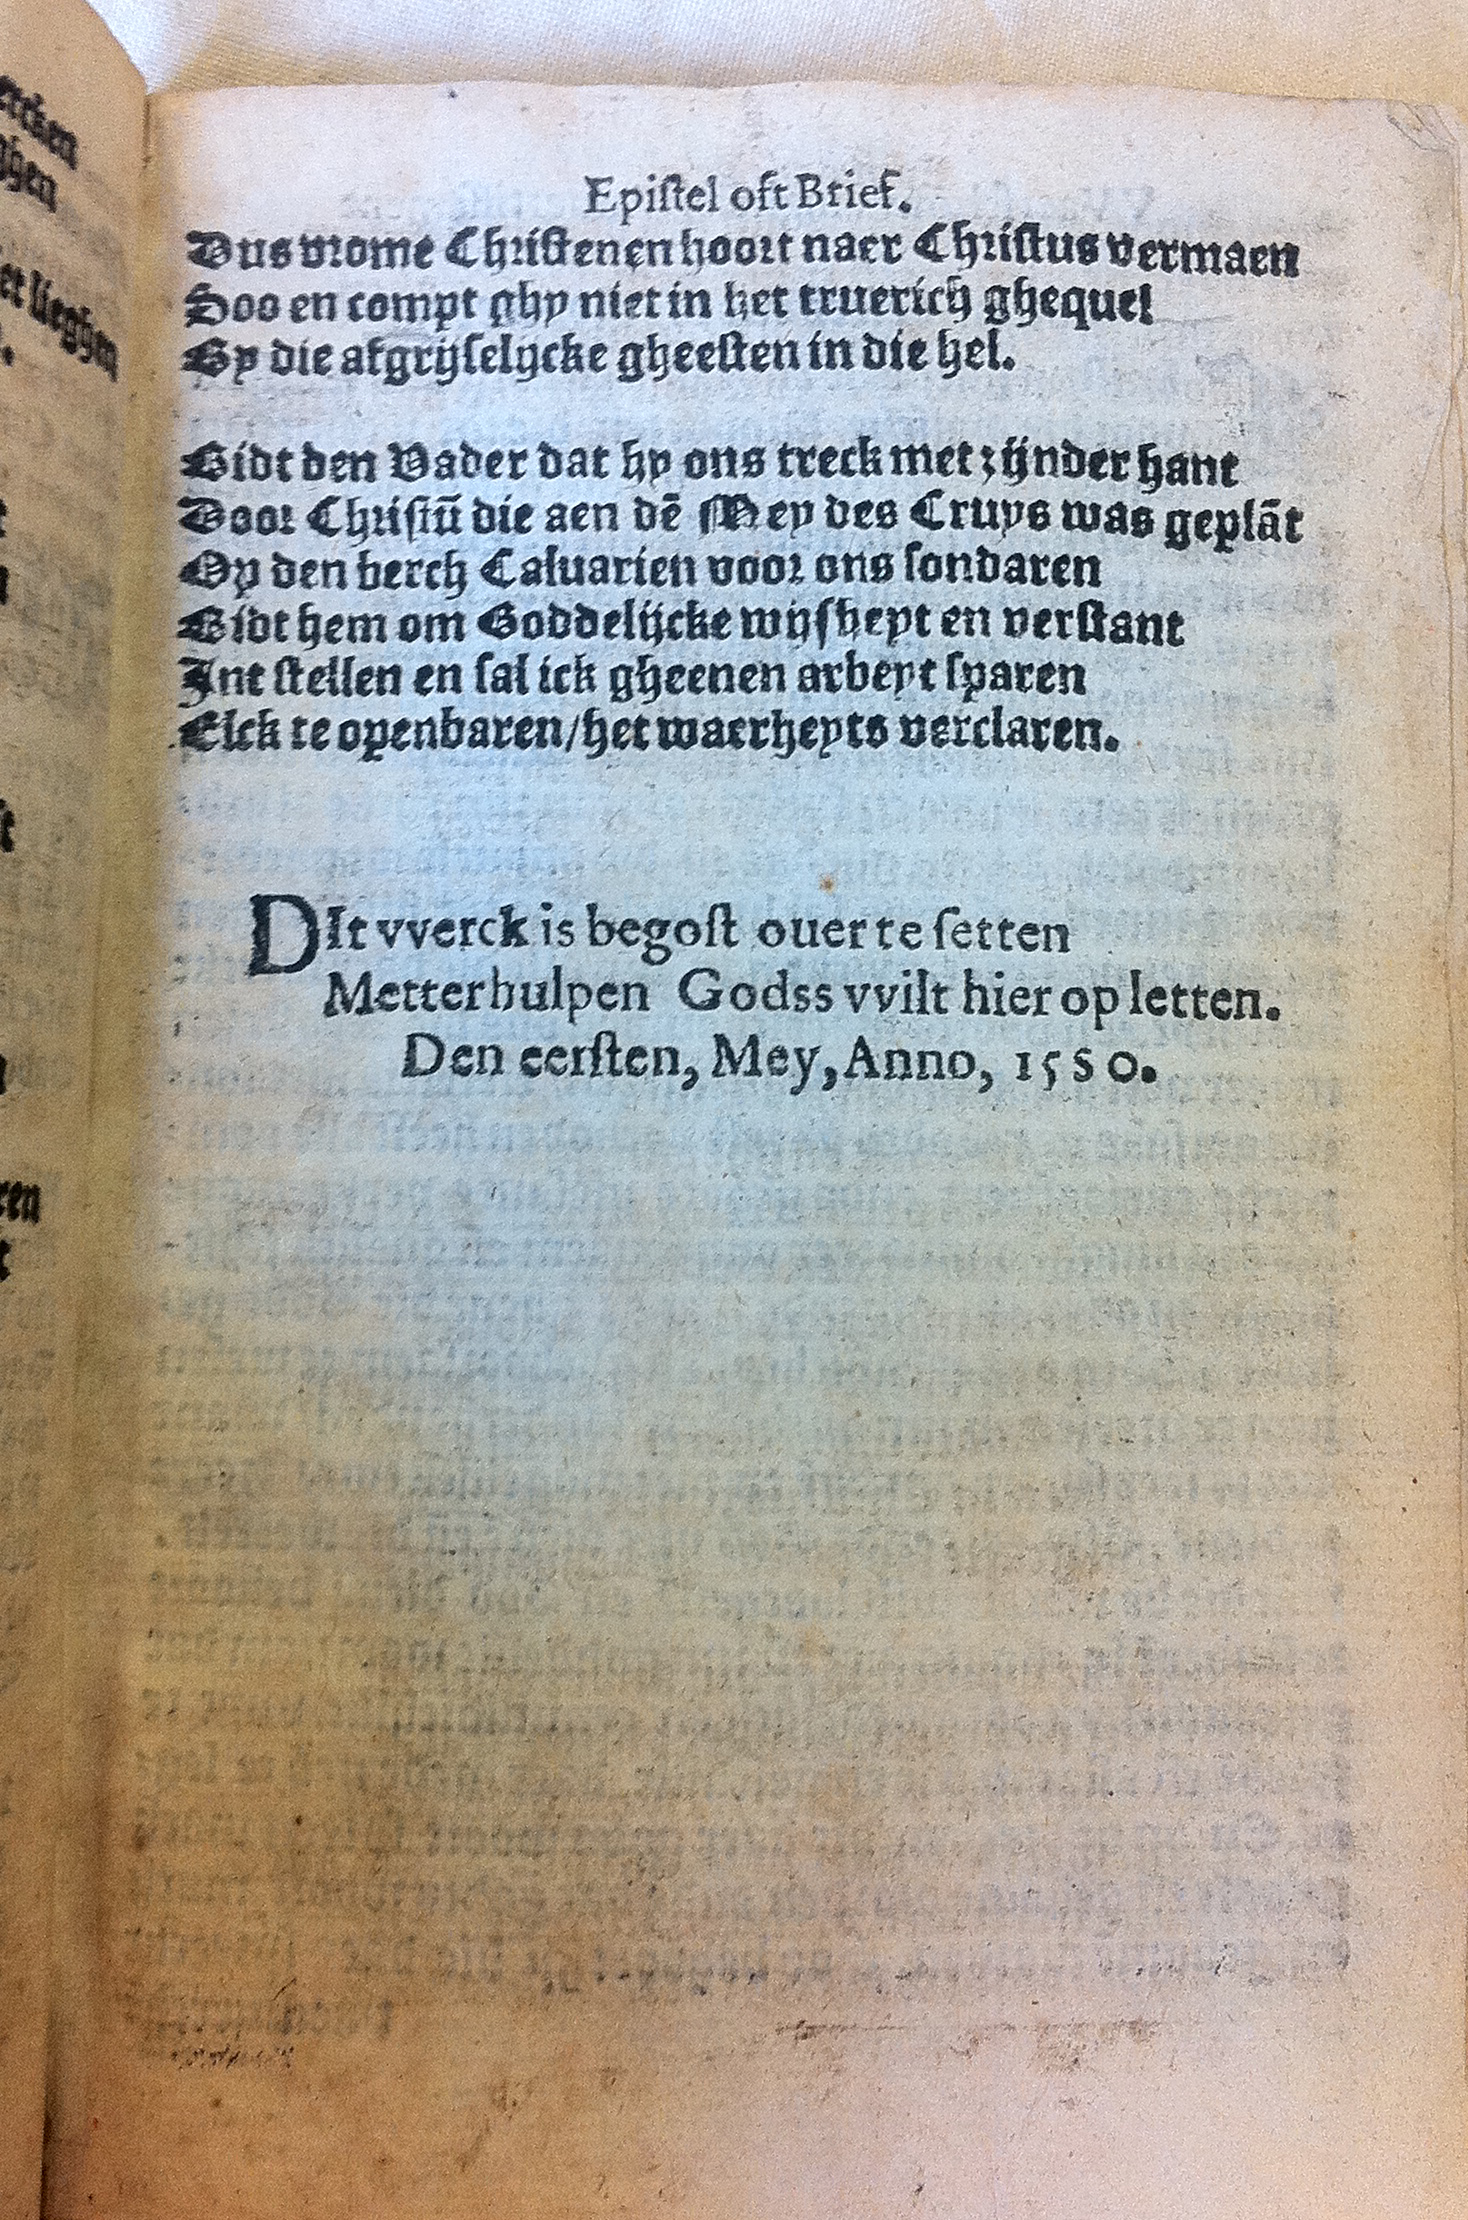 Epiſtel oft Brief.
Dus vrome Chriſtenen hoort naer Chriſtus vermaen
Soo en compt ghy niet in het truerich ghequel
By die afgrijſelijcke gheeſten in die hel.
Bidt den Vader dat hy ons treck met zijnder hant
Door Chriſtū die aen dē Mey des Cruys was geplāt
Op den berch Caluarien voor ons ſondaren
Bidt hem om Goddelijcke wijſheyt en verſtant
Int ſtellen en ſal ick gheenen arbeyt ſparen
Elck te openbaren/het waerheyts verclaren.
DIt vverck is begoſt ouer te ſetten
Metter hulpen Godss vvilt hier op letten.
Den eerſten, Mey, Anno, 1580.
ercken
ghen
et lieghen
ren